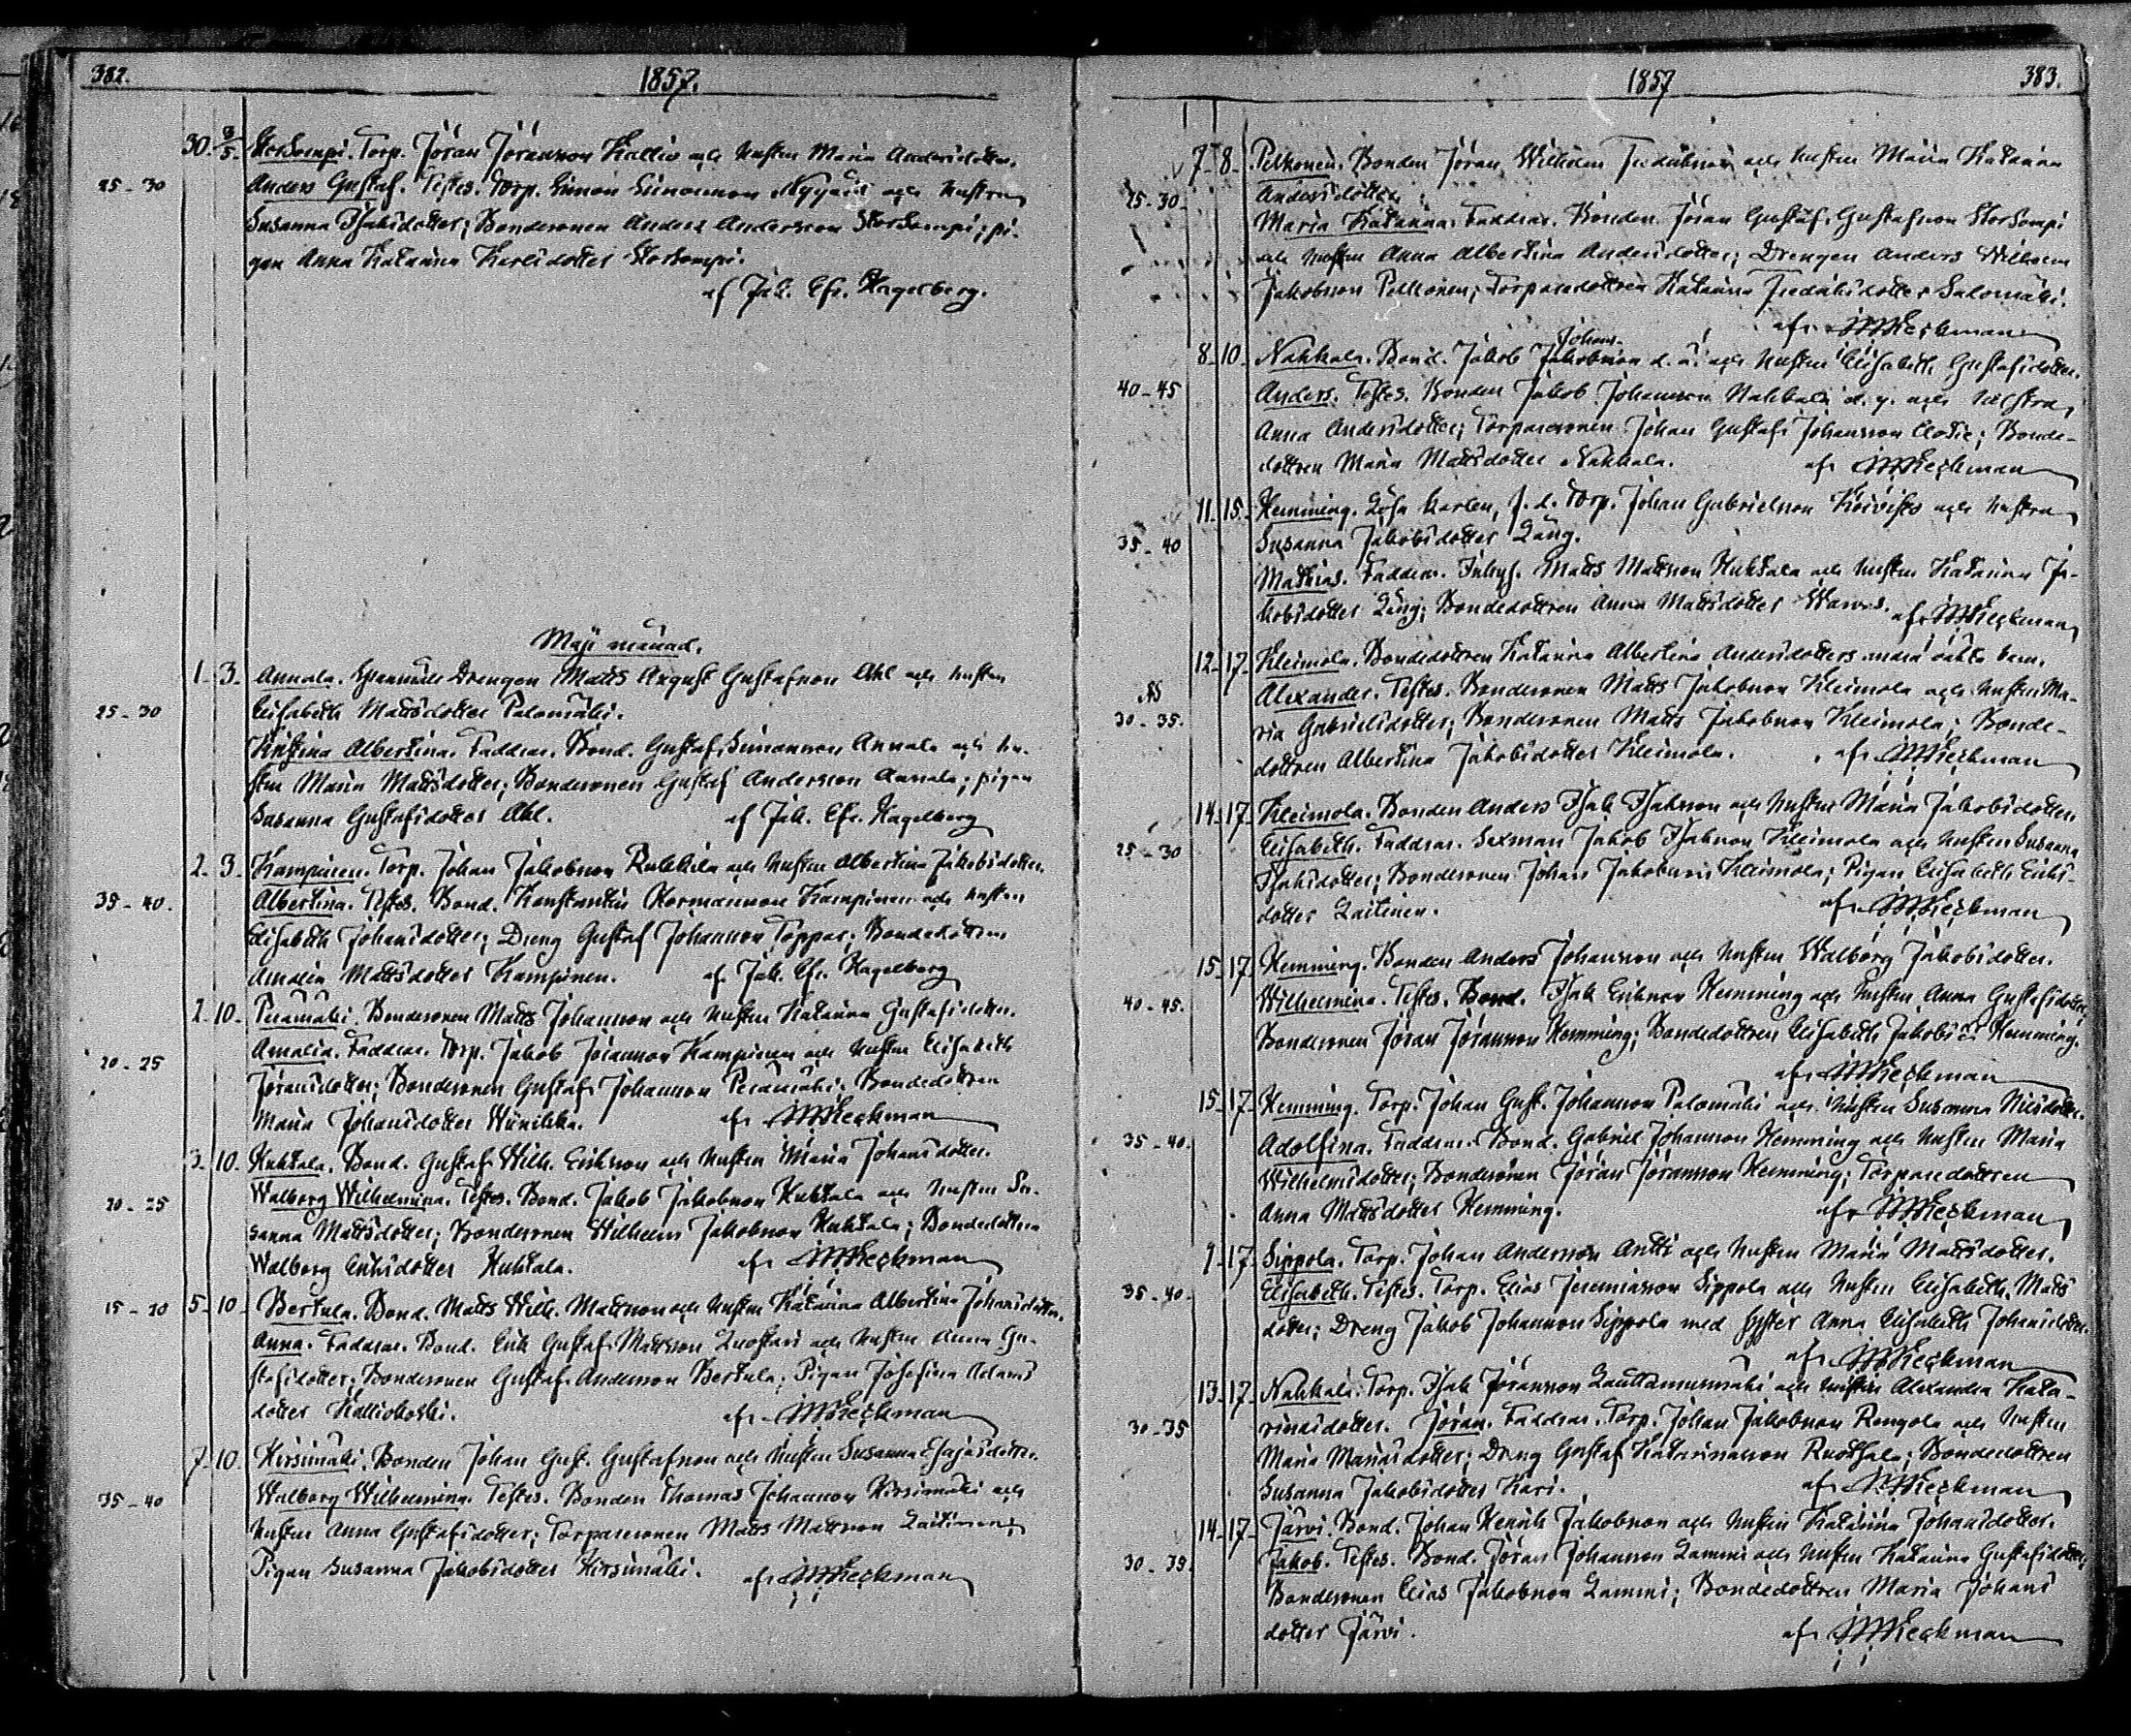 382.
1857.
30. 3/5. Storkempi. Torp. Jöran Jöransson Kallio och hustru Maria Andersdotter.
25-30 Anders Gustaf. Testes. Torp. Simon Simonsson Nygård och hustru
Susanna Isaksdotter; Bondesonen Anders Andersson Storkempi; pi-
gan Anna Katarina Karlsdotter Storkempi.
af Jak. Efr. Hagelberg.
Maji månad.
1. 3. Annala. Drengen Matts August Gustafsson Ahl och hustru
25-30 Elisabeth Mattsdotter Palomäki.
Kristina Albertina. Faddrar. Bond. Gustaf Simonsson Annala och hu-
stru Maria Mattsdotter; Bondesonen Gustaf Andersson Annala; pigan
Susanna Gustafsdotter Ahl. af Jak. Efr. Hagelberg
2. 3. Kampinen. Torp. Johan Jakobsson Rukkila och hustru Albertina Jakobsdotter.
35-40. Albertina. Testes. Bond. Konstantin Hermansson Kampinen och hustru
Elisabeth Johansdotter; Dreng Gustaf Johansson Toppar; Bondedottren
Amalia Mattsdotter Kampinen. af Jak. Efr. Hagelberg
2. 10. Perämäki. Bondesonen Matts Johansson och hustru Katarina Gustafsdotter.
20-25 Amalia. Faddrar. Torp. Jakob Jöransson Kampinen och hustru Elisabeth
Jöransdotter; Bondesonen Gustaf Johansson Perämäki; Bondedottren
Maria Johansdotter Wünikka. af Heckman
3. 10. Huhtala. Bond. Gustaf Wilh. Eriksson och hustru Maria Johansdotter.
20-25 Walborg Wilhelmina. Testes. Bond. Jakob Jakobsson Huhtala och hustru Su-
sanna Mattsdotter; Bondesonen Wilhelm Jakobsson Huhtala; Bondedottren
Walborg Eriksdotter Huhtala. af Heckman
15-20 5. 10. Bertula. Bond. Matts Wilh. Mattsson och hustru Katarina Albertina Johansdotter.
Anna. Faddrar. Bond. Erik Gustaf Mattsson Luostari och hustru Anna Gu-
stafsdotter; Bondesonen Gustaf Andersson Bertula; Pigan Josefina Adams
dotter Kalliokoski. af Heckman
7. 10. Hirsimäki. Bonden Johan Gust. Gustafsson och hustru Susanna Esajasdotter.
35-40 Walborg Wilhelmina. Testes. Bonden Thomas Johansson Hirsimäki och
hustru Anna Gustafsdotter; Torparesonen Matts Mattsson Laitinen;
Pigan Susanna Jakobsdotter Hirsimäki. af Heckman
1857
383.
7. 8. Pelkonen. Bonden Jöran Wilhelm Fredriksson och hustru Maria Katarina
25-30. Andersdotter.
Maria Katarina. Faddrar. Bonden Jöran Gustaf Gustafsson Storkempi
och hustru Anna Albertina Andersdotter; Drengen Anders Wilhelm
Jakobsson Pelkonen; Torparedottren Katarina Fredriksdotter Salomäki.
af Heckman
Johans-
8. 10. Nahkala. Bond. Jakob Jakobsson d. ä. och hustru Elisabeth Gustafsdotter.
40-45 Anders. Testes. Bonden Jakob Johansson Nahkala d. y. och hustru
Anna Andersdotter; Torparesonen Johan Gustaf Johansson; Bonde-
dottren Maria Mattsdotter Nahkala. af Heckman
11. 15. Hemming. Lösa karlen, f. d. Torp. Johan Gabrielsson Koivisto och hustru
35-40 Susanna Jakobsdotter Lång.
Mathias. Faddrar. Inhys. Matts Mattsson Huhtala och hustru Katarina Ja-
kobsdotter Lång; Bondedottren Anna Mattsdotter Warvas. af Heckman
12. 17. Kleimola. Bondedottren Katarina Albertina Andersdotters andra oäkta barn.
30-35. Alexander. Testes. Bondesonen Matts Jakobsson Kleimola och hustru Ma-
ria Gabrielsdotter; Bondesonen Matts Jakobsson Kleimola; Bonde-
dottren Albertina Jakobsdotter Kleimola. af Heckman
14. 17. Kleimola. Bonden Anders Isak Isaksson och hustru Maria Jakobsdotter.
25-30 Elisabeth. Faddrar. Sexman Jakob Isaksson Kleimola och hustru Susanna
Isaksdotter; Bondesonen Johan Jakobsson Kleimola; Pigan Elisabeth Eriks-
dotter Laitinen. af Heckman
15. 17. Hemming. Bonden Anders Johansson och hustru Walborg Jakobsdotter.
40-45. Wilhelmina. Testes. Bond. Isak Eriksson Hemming och hustru Anna Gustafsdotter;
Bondesonen Jöran Jöransson Hemming; Bondedottren Elisabeth Jakobsdr Hemming.
af Heckman
15. 17. Hemming. Torp. Johan Gust. Johansson Palomäki och hustru Susanna Nilsdotter.
35-40. Adolfina. Faddrar. Bond. Gabriel Johansson Hemming och hustru Maria
Wilhelmsdotter; Bondesonen Jöran Jöransson Hemming; Torparedottren
Anna Mattsdotter Hemming. af Heckman
9. 17. Sippola. Torp. Johan Andersson Antti och hustru Maria Mattsdotter.
35-40. Elisabeth. Testes. Torp. Elias Jeremiasson Sippola och hustru Elisabeth Matts
dotter; Dreng Jakob Johansson Sippola med syster Anna Elisabeth Johansdotter.
af Heckman
13. 17. Nahkala. Torp. Isak Jöransson Lauttamusmäki och hustru Alexandra Kata-
30-35 rinasdotter. Jöran. Faddrar. Torp. Johan Jakobsson Rengola och hustru
Maria Mariasdotter; Dreng Gustaf Katarinasson Ruotsala; Bondedottren
Susanna Jakobsdotter Kari. af Heckman
14. 17. Järvi. Bond. Johan Henrik Jakobsson och hustru Katarina Johansdotter.
30-35. Jakob. Testes. Bond. Jöran Johansson Lammi och hustru Katarina Gustafsdotter;
Bondesonen Elias Jakobsson Lammi; Bondedottren Maria Johans
dotter Järvi. af Heckman